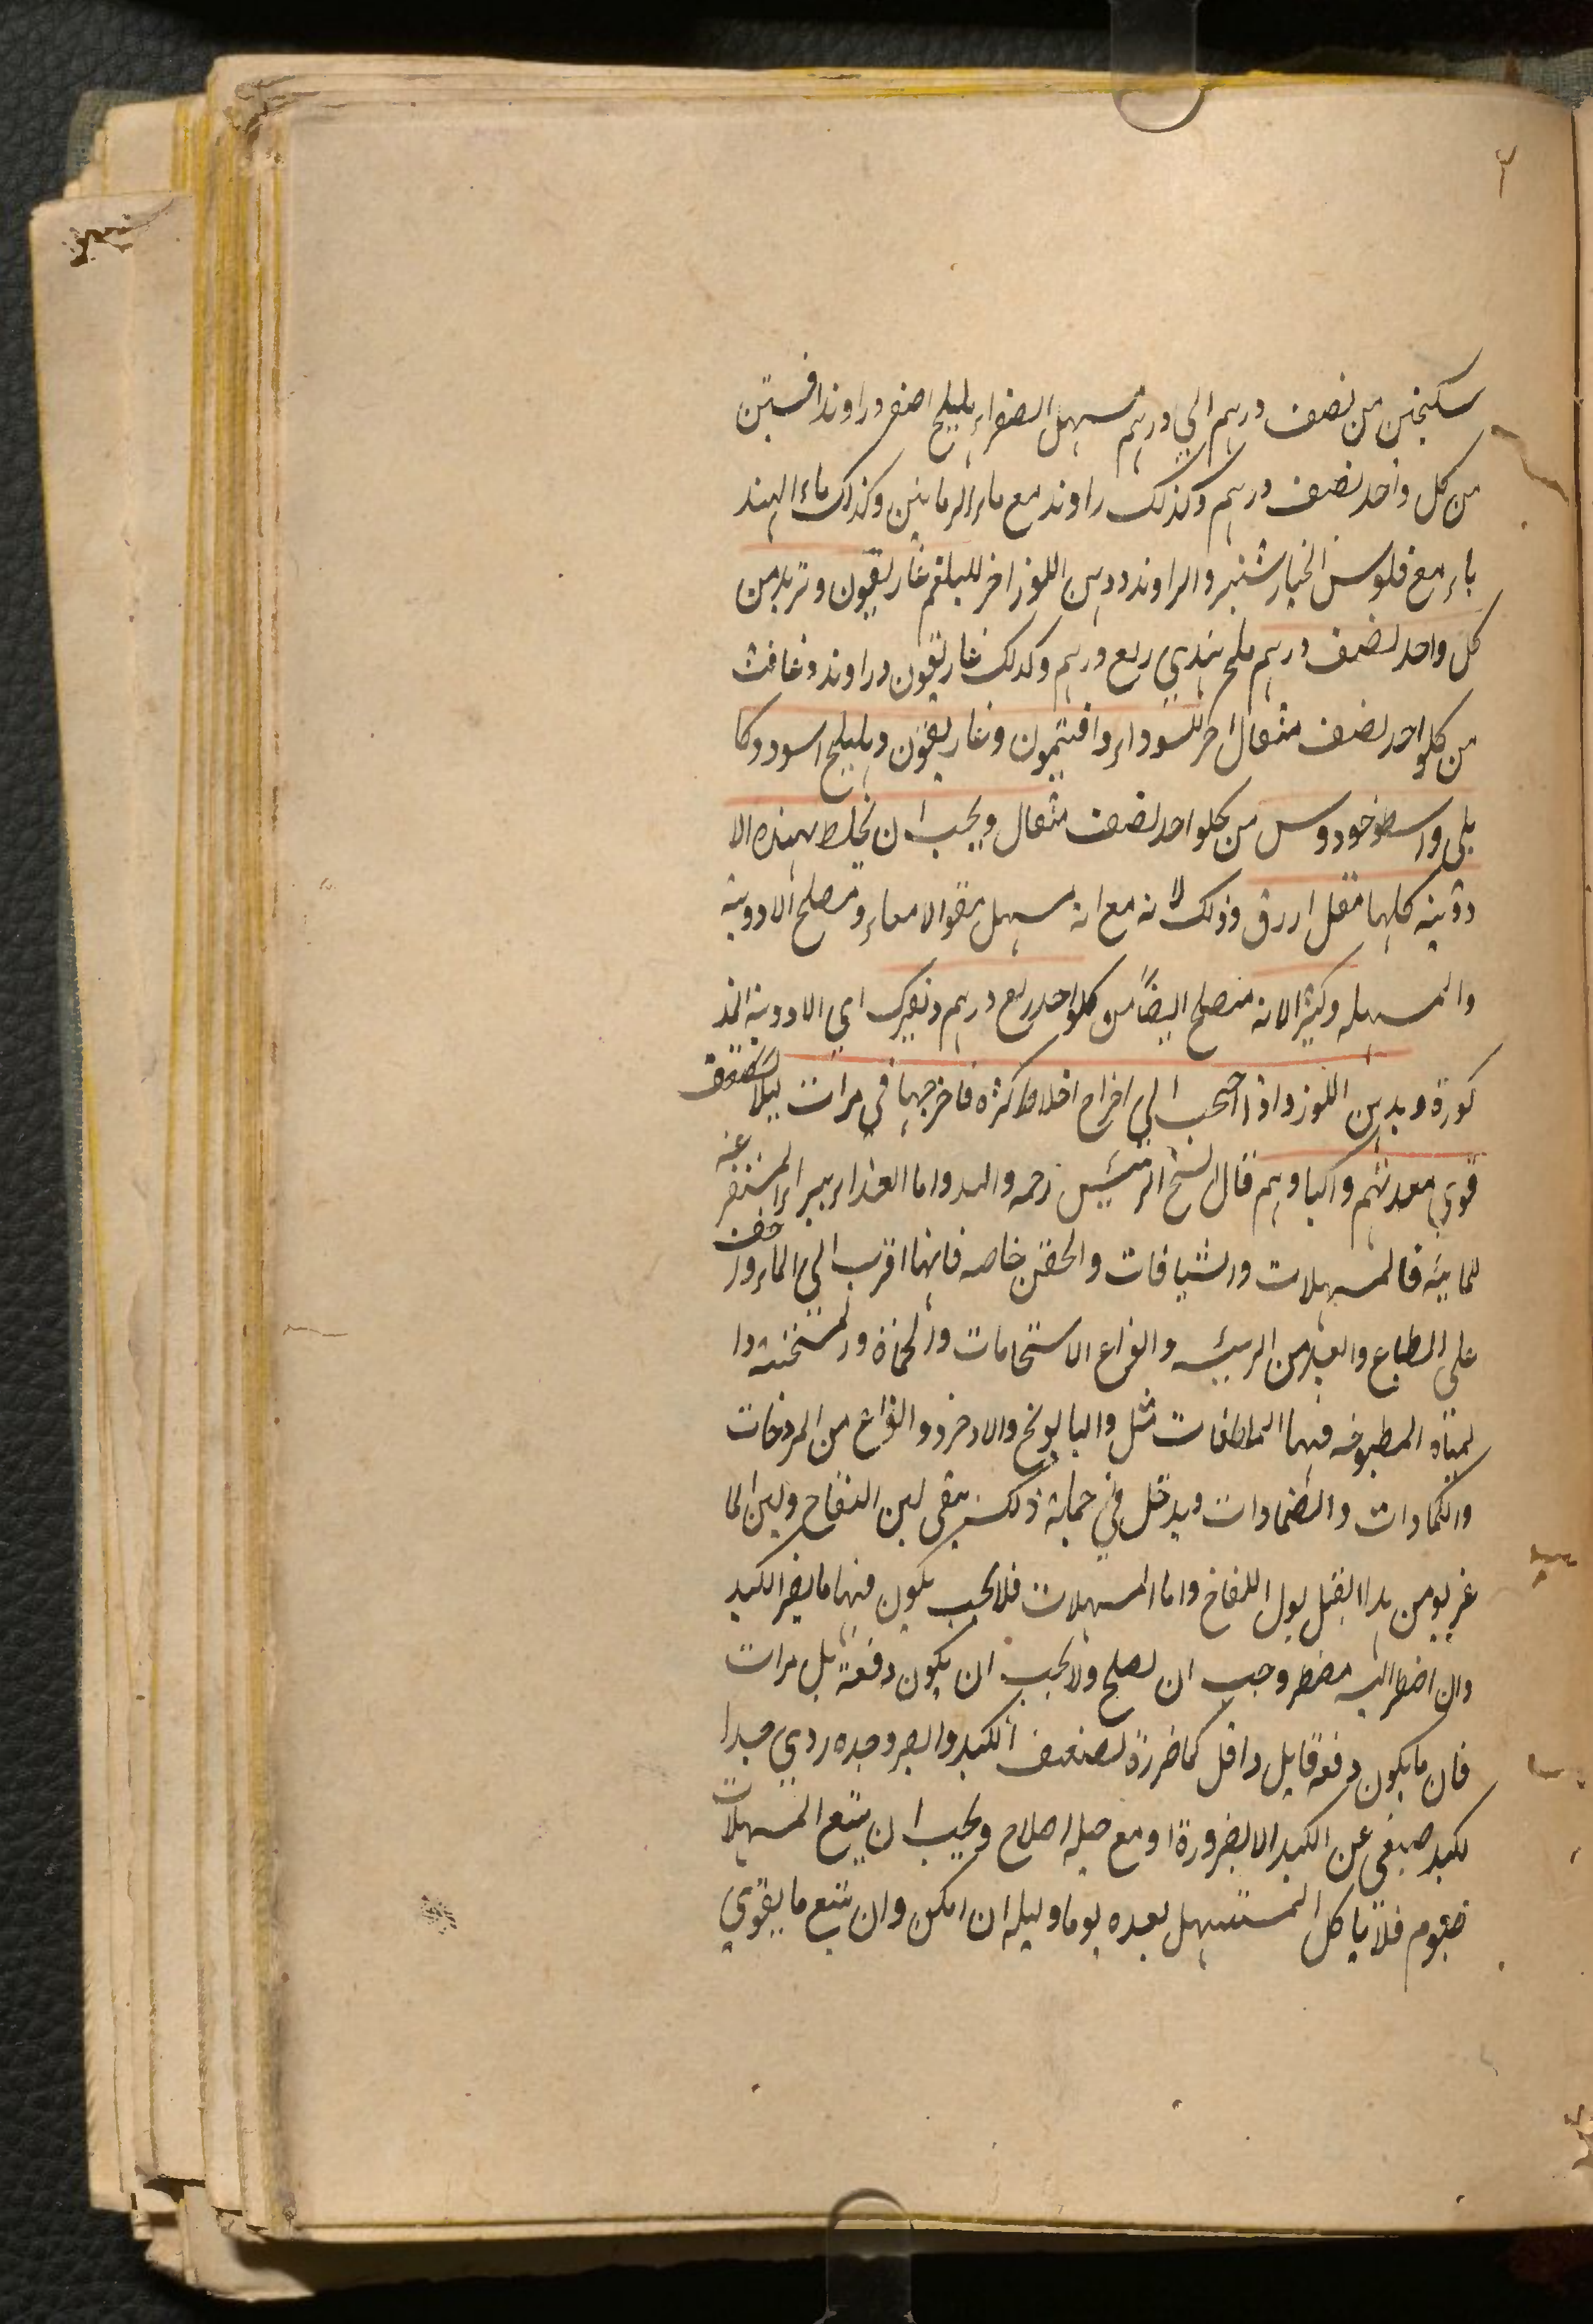 ٢
سكنجبين من نصف درهم الي درهم مسهل الصفراء هليلج اصفر وراوند افسنتين
من كل واحد نصف درهم وكذلك راوند مع ماء الرمانين وكذلك ماء الهند
باء مع فلوس الخيارشنبر والراوند ودهن اللوز اخر للبلغم غاريقون وتربد من
كل واحد نصف درهم ملح هندي ربع درهم وكذلك غاريقون وراوند وغافث
من كلواحد نصف مثقال اخر للسوداء وافتيمون وغاريقون وهليلج اسود وكا
بلي واسطوخودوس من كلواحد نصف مثقال ويجب ان يخلط بهذه الا
دوية كلها مقل ازرق وذلك لانه مع انه مسهل مقو الامعاء ومصلح الادوية
والمسهله وكثيرا لانه مصلح ايضاً من كلواحد ربع درهم وتفرك اي الادوية المذ
كورة وبدهن اللوز واذا احتجب الي اخراج اخلاط كثره فاخرجها في مرات ليلا تضعف
قوي معدتهم واكبادهم قال الشيخ الرئيس رحمه والله واما الغذا المستفرغه
للمائية فالمسهلات والشيافات والحقن خاصه فانها اقرب الي الماء واخف
على الطباع وابعد من الرئيسه وانواع الاستحمامات والحماة والمسخنة وا
لمياه المطبوخه فيها الملطفات مثل والبابونج والاذخر وانواع من المروخات
والكمادات والضمادات ويدخل في جملة ذلك لبن اللقاح ولبن الما
عز ومن هذا القبل بول اللقاح واما المسهلات فلا يجب يكون فيها ما يضر الكبد
وان اضطر اليه مضطر وجب ان يصلح ولا يجب ان يكون دفعة بل مرات
فان ما يكون دفعة قاتل واقل كما ضررة لضعف الكبد والصبر وحده ردي جدا
لكبد عن الكبد الا لضرورة او مع حيله اصلاح ويجب ان يتبع المسهلات
فلا ياكل المستسهل بعده يوما وليله ان امكن وان يتبع ما يقوي